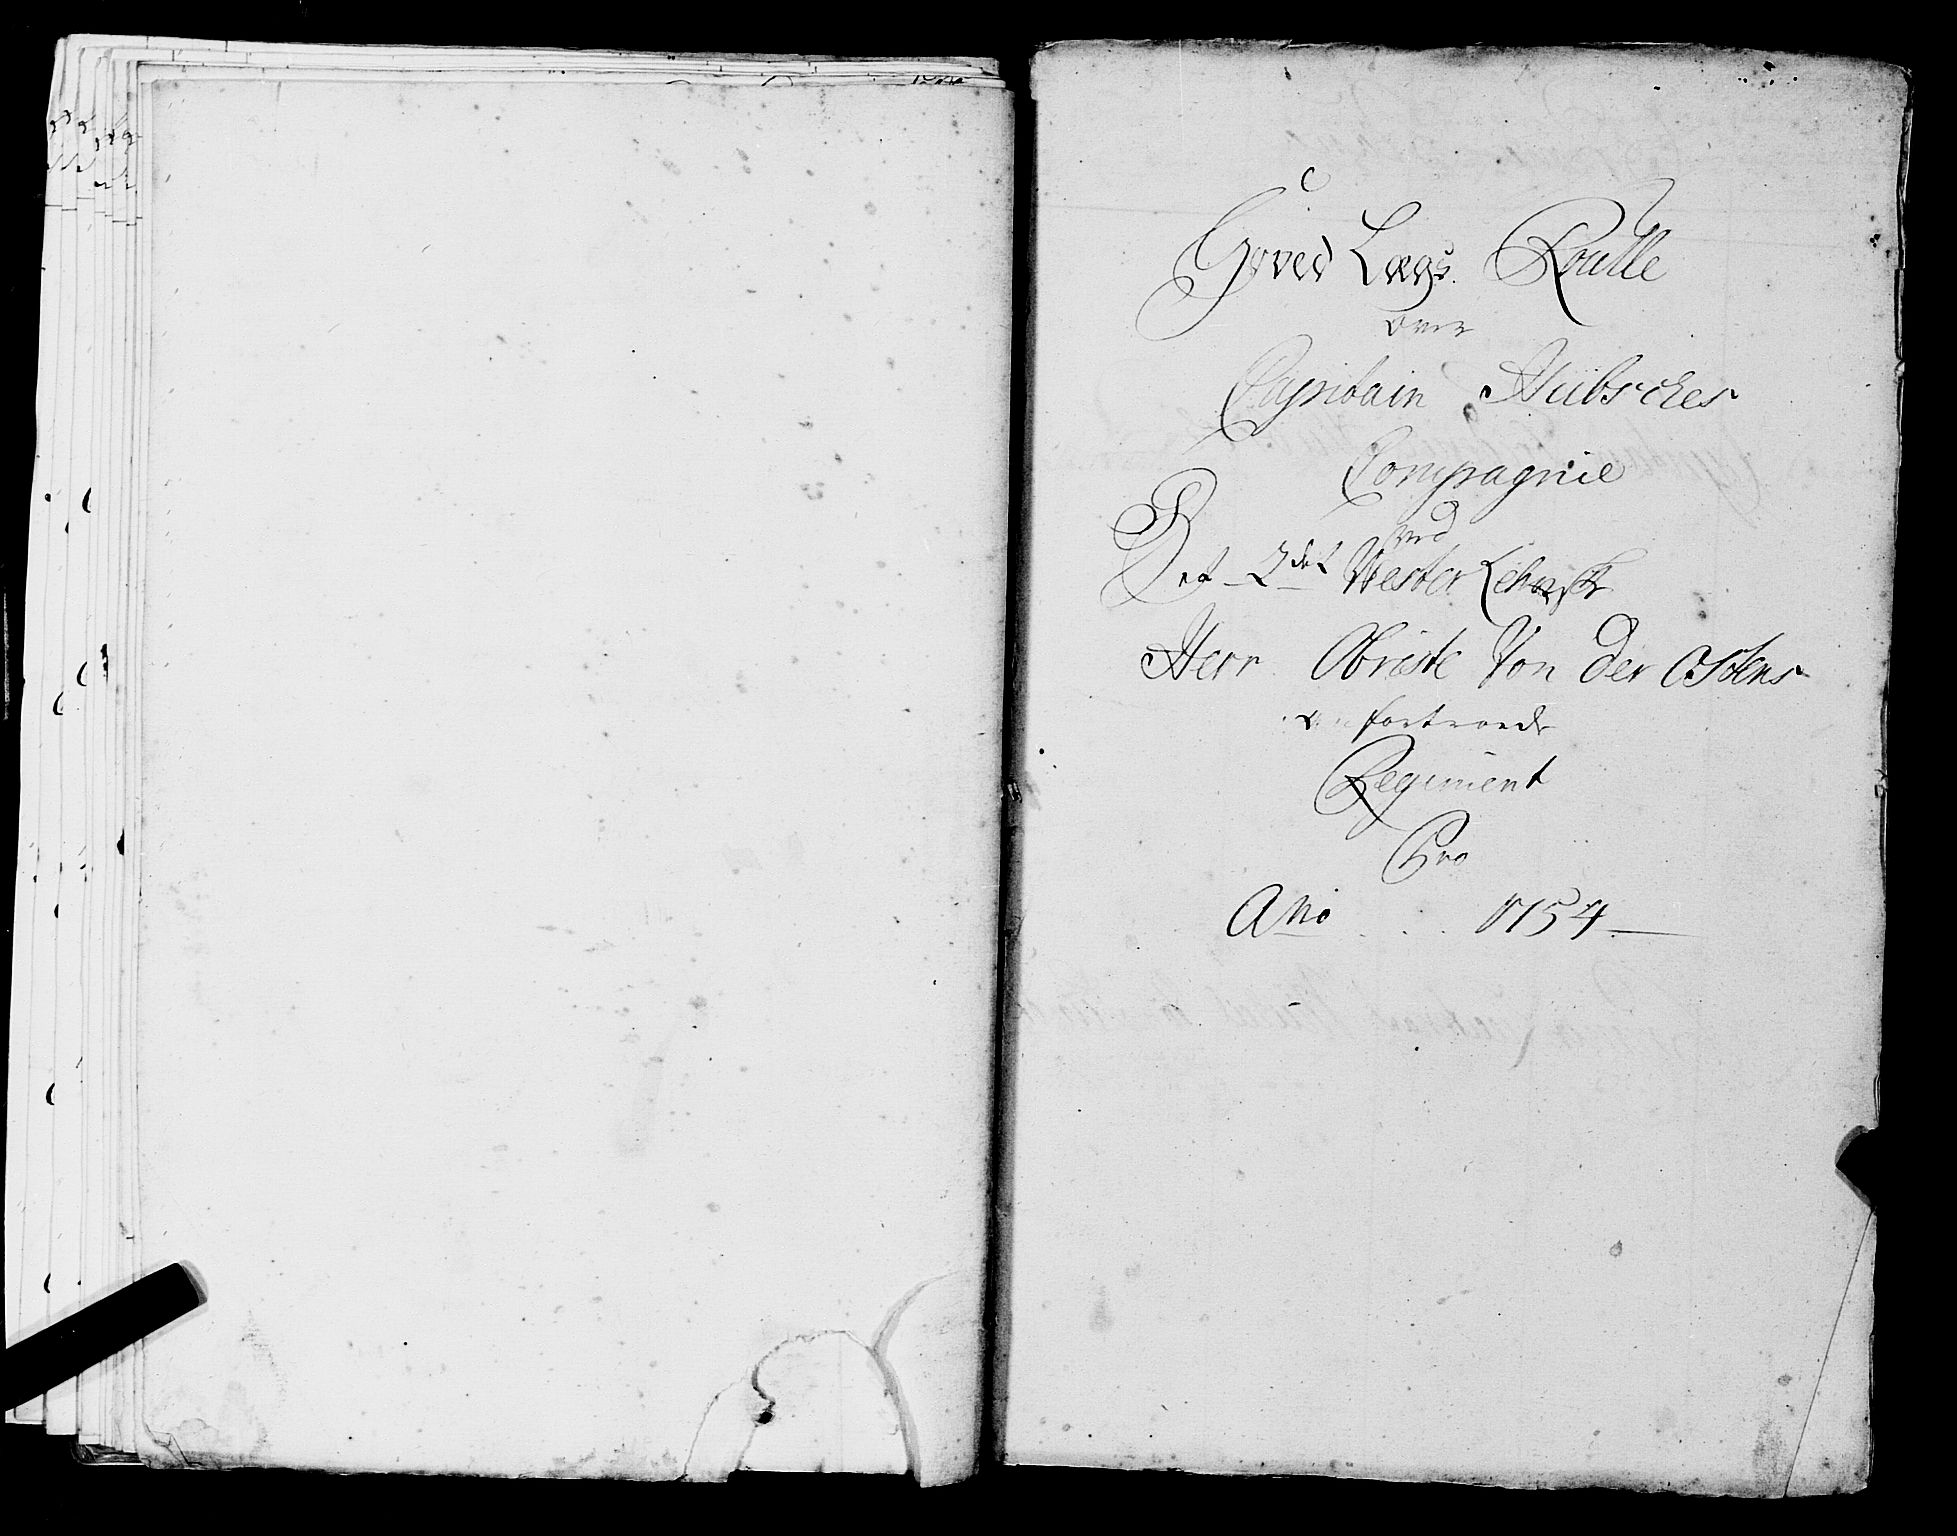 Hoved Lægs Rulle
over
Capitain Hübsches
Compagnie
ved
Det 2det Vester Lehnske
Herr Obriste Von der Ostens
anfortroede
Regiment
Pro
Ano 1754